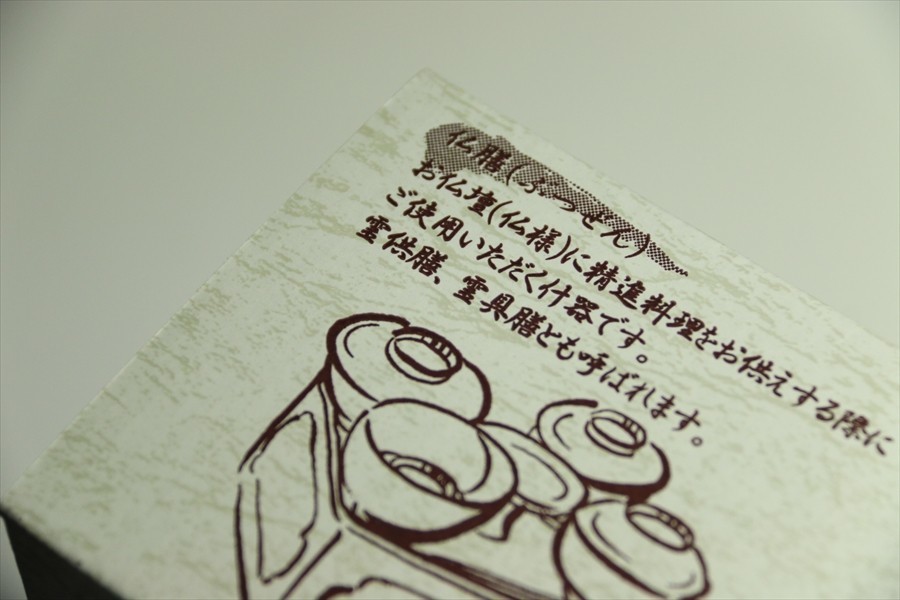 仏膳(ぶつぜん)
お仏壇(仏様)に精進料理をお供えする際に
ご使用いただく什器です。
霊供膳、霊具膳とも呼ばれます。